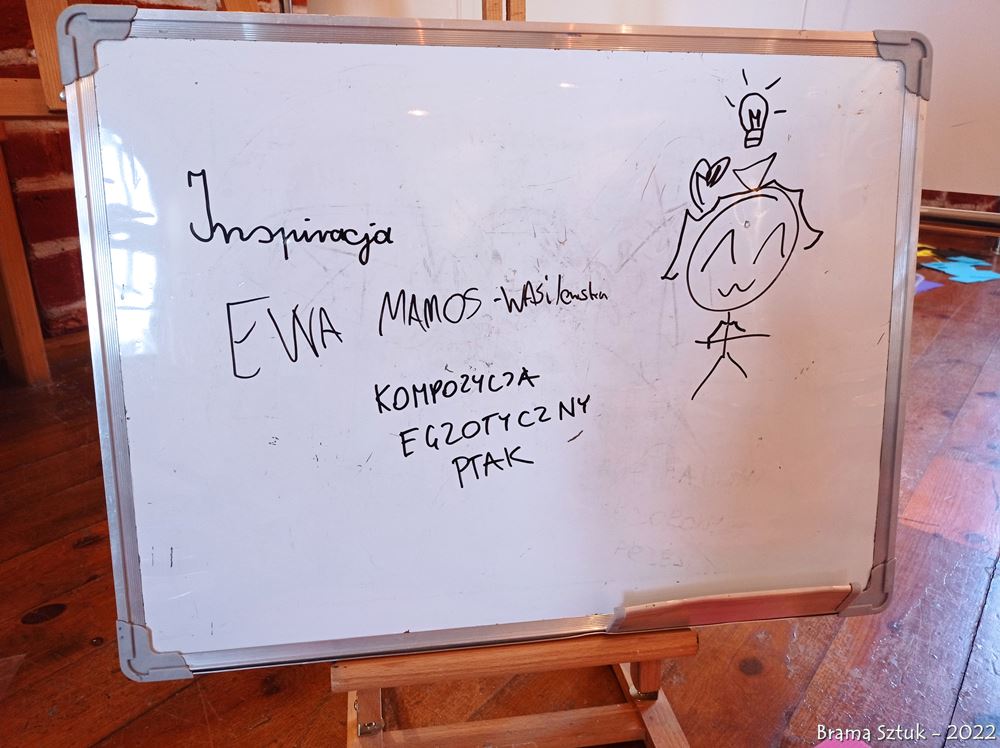 M
Inspiracja
EWA MAMOS-WASilewska
KOMPOZYCJA
EGZOTYCZNY
PTAK
Brama Sztuk - 2022